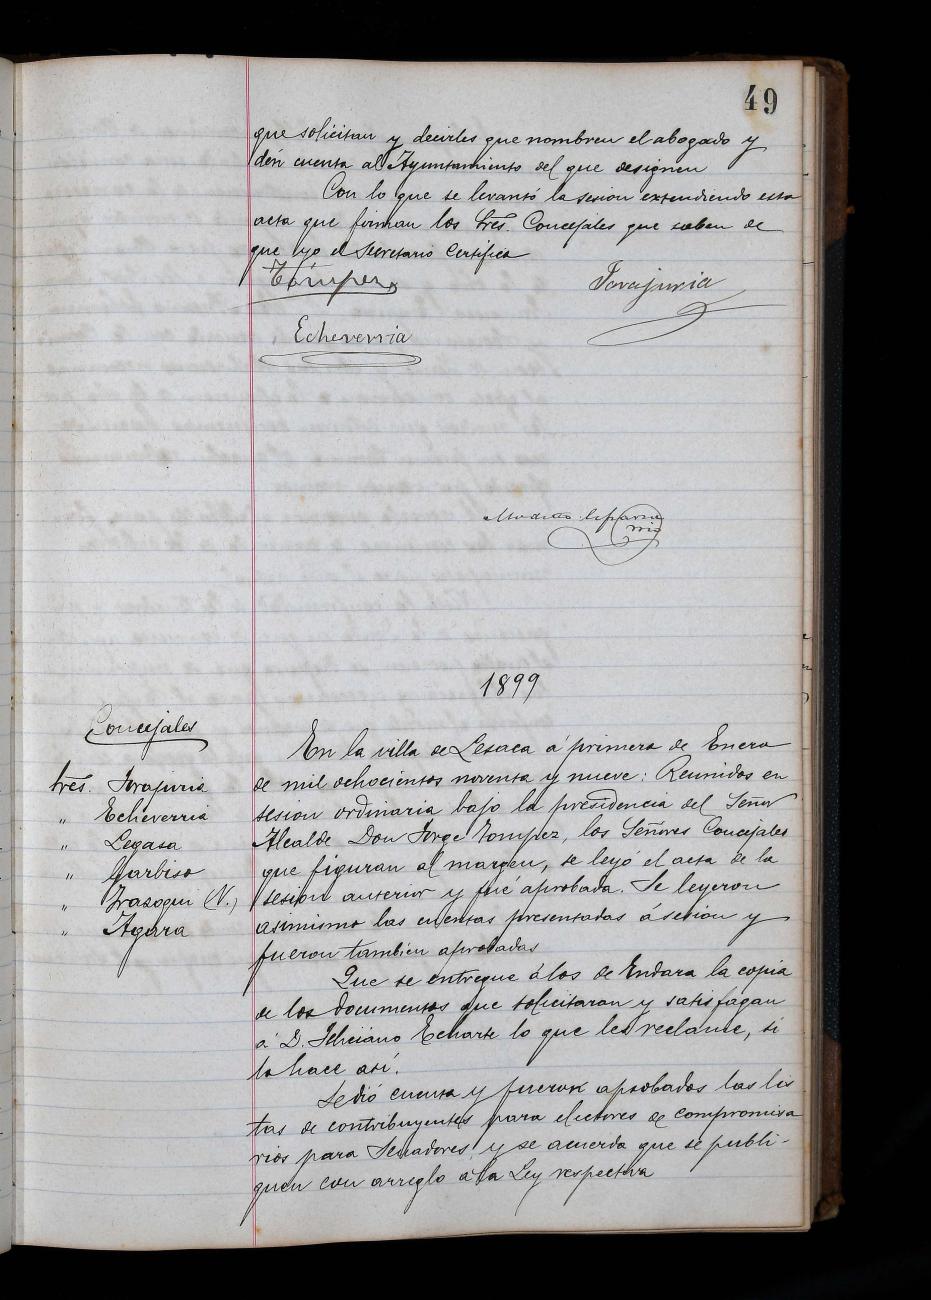 49
que solicitan y decirles que nombren el abogado y
dén cuenta al Ayuntamiento del que designen
Con lo que se levantó la sesion extendiendo esta
acta que firman los tres. Concejales que saben de
que yo el Secretario Certifico
Tómpez
Echeverria
1899
Concejales
tres. Irajuria
„ Echeverria
„ Legasa
„ Garbiso
„ Irazoqui (V.)
„ Agara
En la villa de Lesaca á primero de Enero
de mil ochocientos noventa y nueve: Reunidos en
sesion ordinaria bajo la presidencia del Señor
Alcalde Don Jorge Tompez, los Señores Concejales
que figuran al margen, se leyó el acta de la
sesion anterior y fué aprobada. Se leyeron
asimismo las cuentas presentadas á sesion y
fueron tambien aprobadas
Que se entregue á los de Endara la copia
de los documentos que solicitaran y satisfagan
á D. Feliciano Echarte lo que les reclame, si
lo hace así.
Se dió cuenta y fueron aprobados las lis
tas de contribuyentes para electores de compromisa
rios para Senadores y se acuerda que se publi-
quen con arreglo á la Ley respectiva